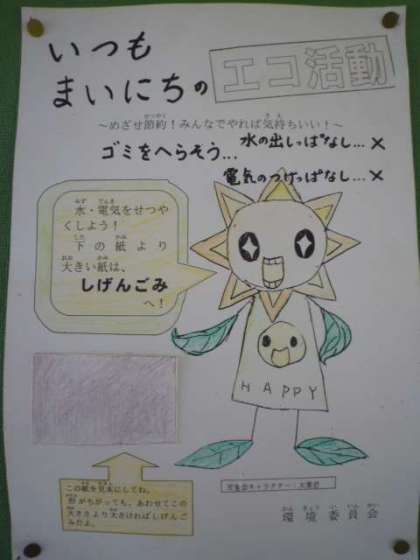 いつも
まいにちの エコ活動
～めざせ節約！みんなでやれば気持ちいい！～
ゴミをへらそう... 水の出しっぱなし...×
電気のつけっぱなし...×
水・電気をせつや
くしよう！
下の紙より
大きい紙は、
しげんごみ
へ！
HAPPY
この紙を見本にしてね。
形がちがっても、あわせてこの
大きさより大きければしげんご
みだよ。
環境委員会